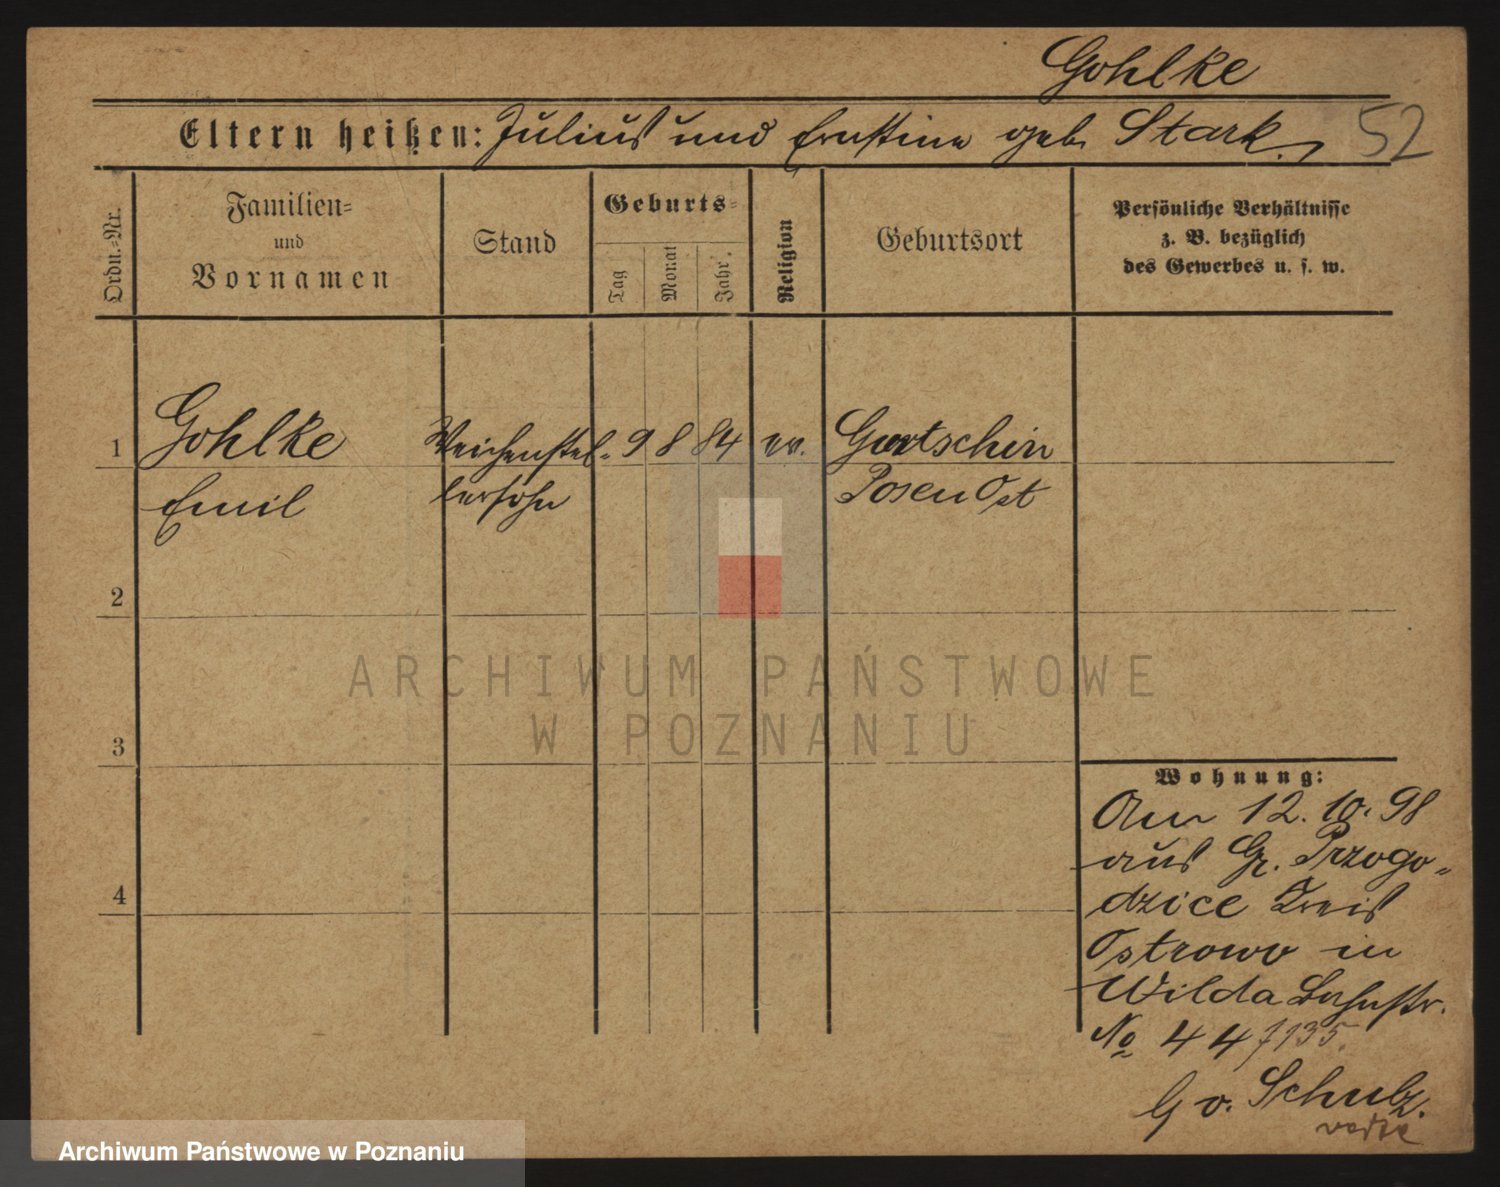 Gohlke
Eltern heißen: Julius und Ernstine geb. Stark.
52
Ordn.-Nr.
Familien-
und
Vornamen
Stand
Geburts-
Tag
Monat
Jahr.
Religion
Geburtsort
Persönliche Verhältnisse
z. B. bezüglich
des Gewerbes u. s. w.
1 Gohlke Weichenstel- 9 8 84 ev. Gurtschin
Emil lersohn Posen Ost
2
3
4
Wohnung:
Am 12. 10. 98
aus Gr. Przygo-
dzice Kreis
Ostrowo in
Wilda Bahnstr.
No 44
b. v. Schulz.
ARCHIWUM PAŃSTWOWE
W POZNANIU
Archiwum Państwowe w Poznaniu